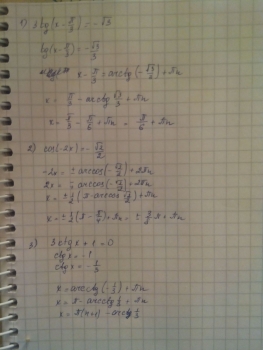 1) 3tg(x-π/3) = -√3
tg(x-π/3) = -√3/3
x-π/3 = arctg(-√3/3)+πn
x = π/3 - arctg √3/3 + πn
x = π/3 - π/6 + πn = π/6 + πn
2) cos(-2x) = -√2/2
-2x = ± arccos(-√2/2)+2πn
2x = ± arccos(-√2/2)+2πn
x = ± 1/2 (π - arccos √2/2)+πn
3) 3ctgx + 1 = 0
ctgx = -1
ctgx = -1/3
x = arcctg(-1/3)+πn
x = π - arcctg 1/3 + πn
x = π(n+1) - arcctg 1/3